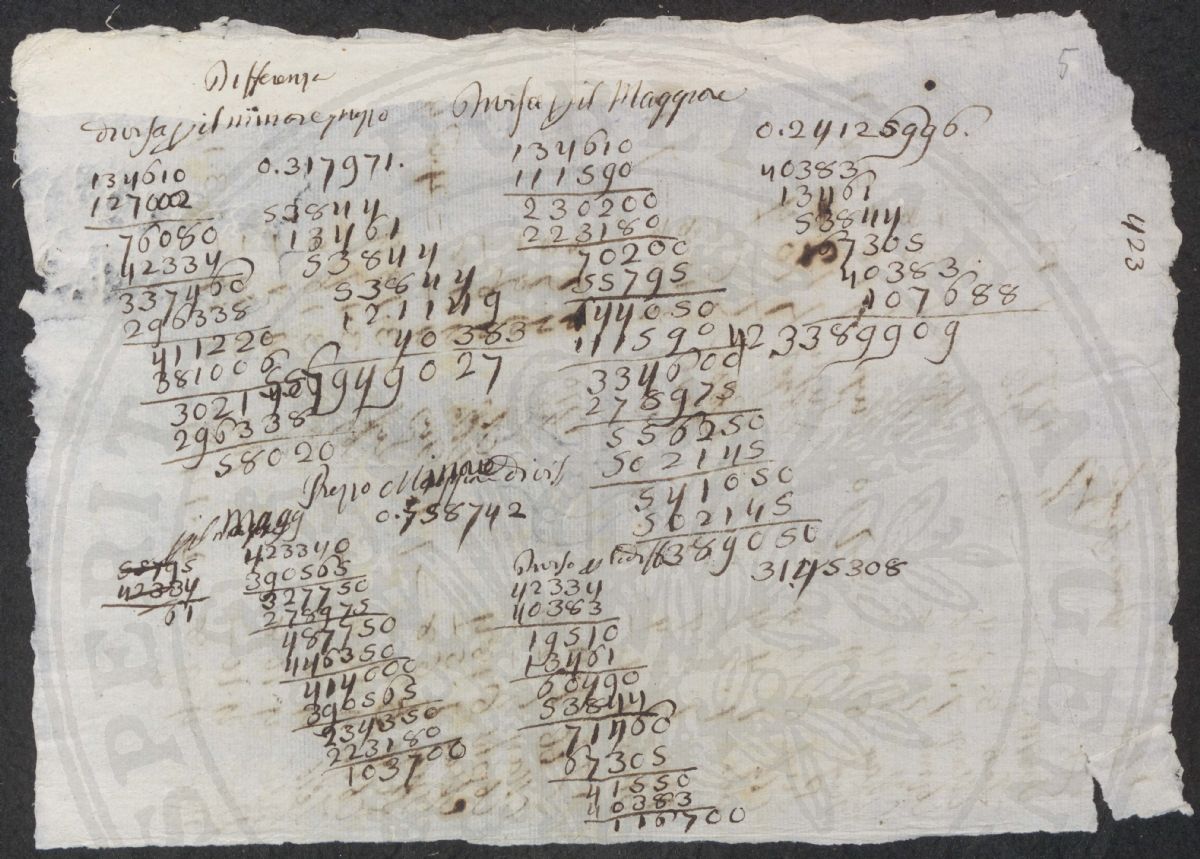 5
Differenza
divisa p il minore prezzo
134610
127002
76080
42334
337460
296338
411220
381006
302140
296338
58020
0.317971.
53844
13461
53844
53844
121149
40383
Divisa p il Maggiore
134610
111590
230200
223180
70200
55795
144050
111590
334600
278975
556250
502145
541050
502145
389050
0.24125996.
40383
13461
53844
67305
40383
107688
42.3389909
423
Prezzo
divis
0.758742
p il Magg
55795
42334
61
423340
390565
327750
278975
487750
446350
414000
390565
234350
223180
103700
42334
40383
19510
13461
60490
53844
71460
67305
41550
40383
116700
3145308
SPERIT